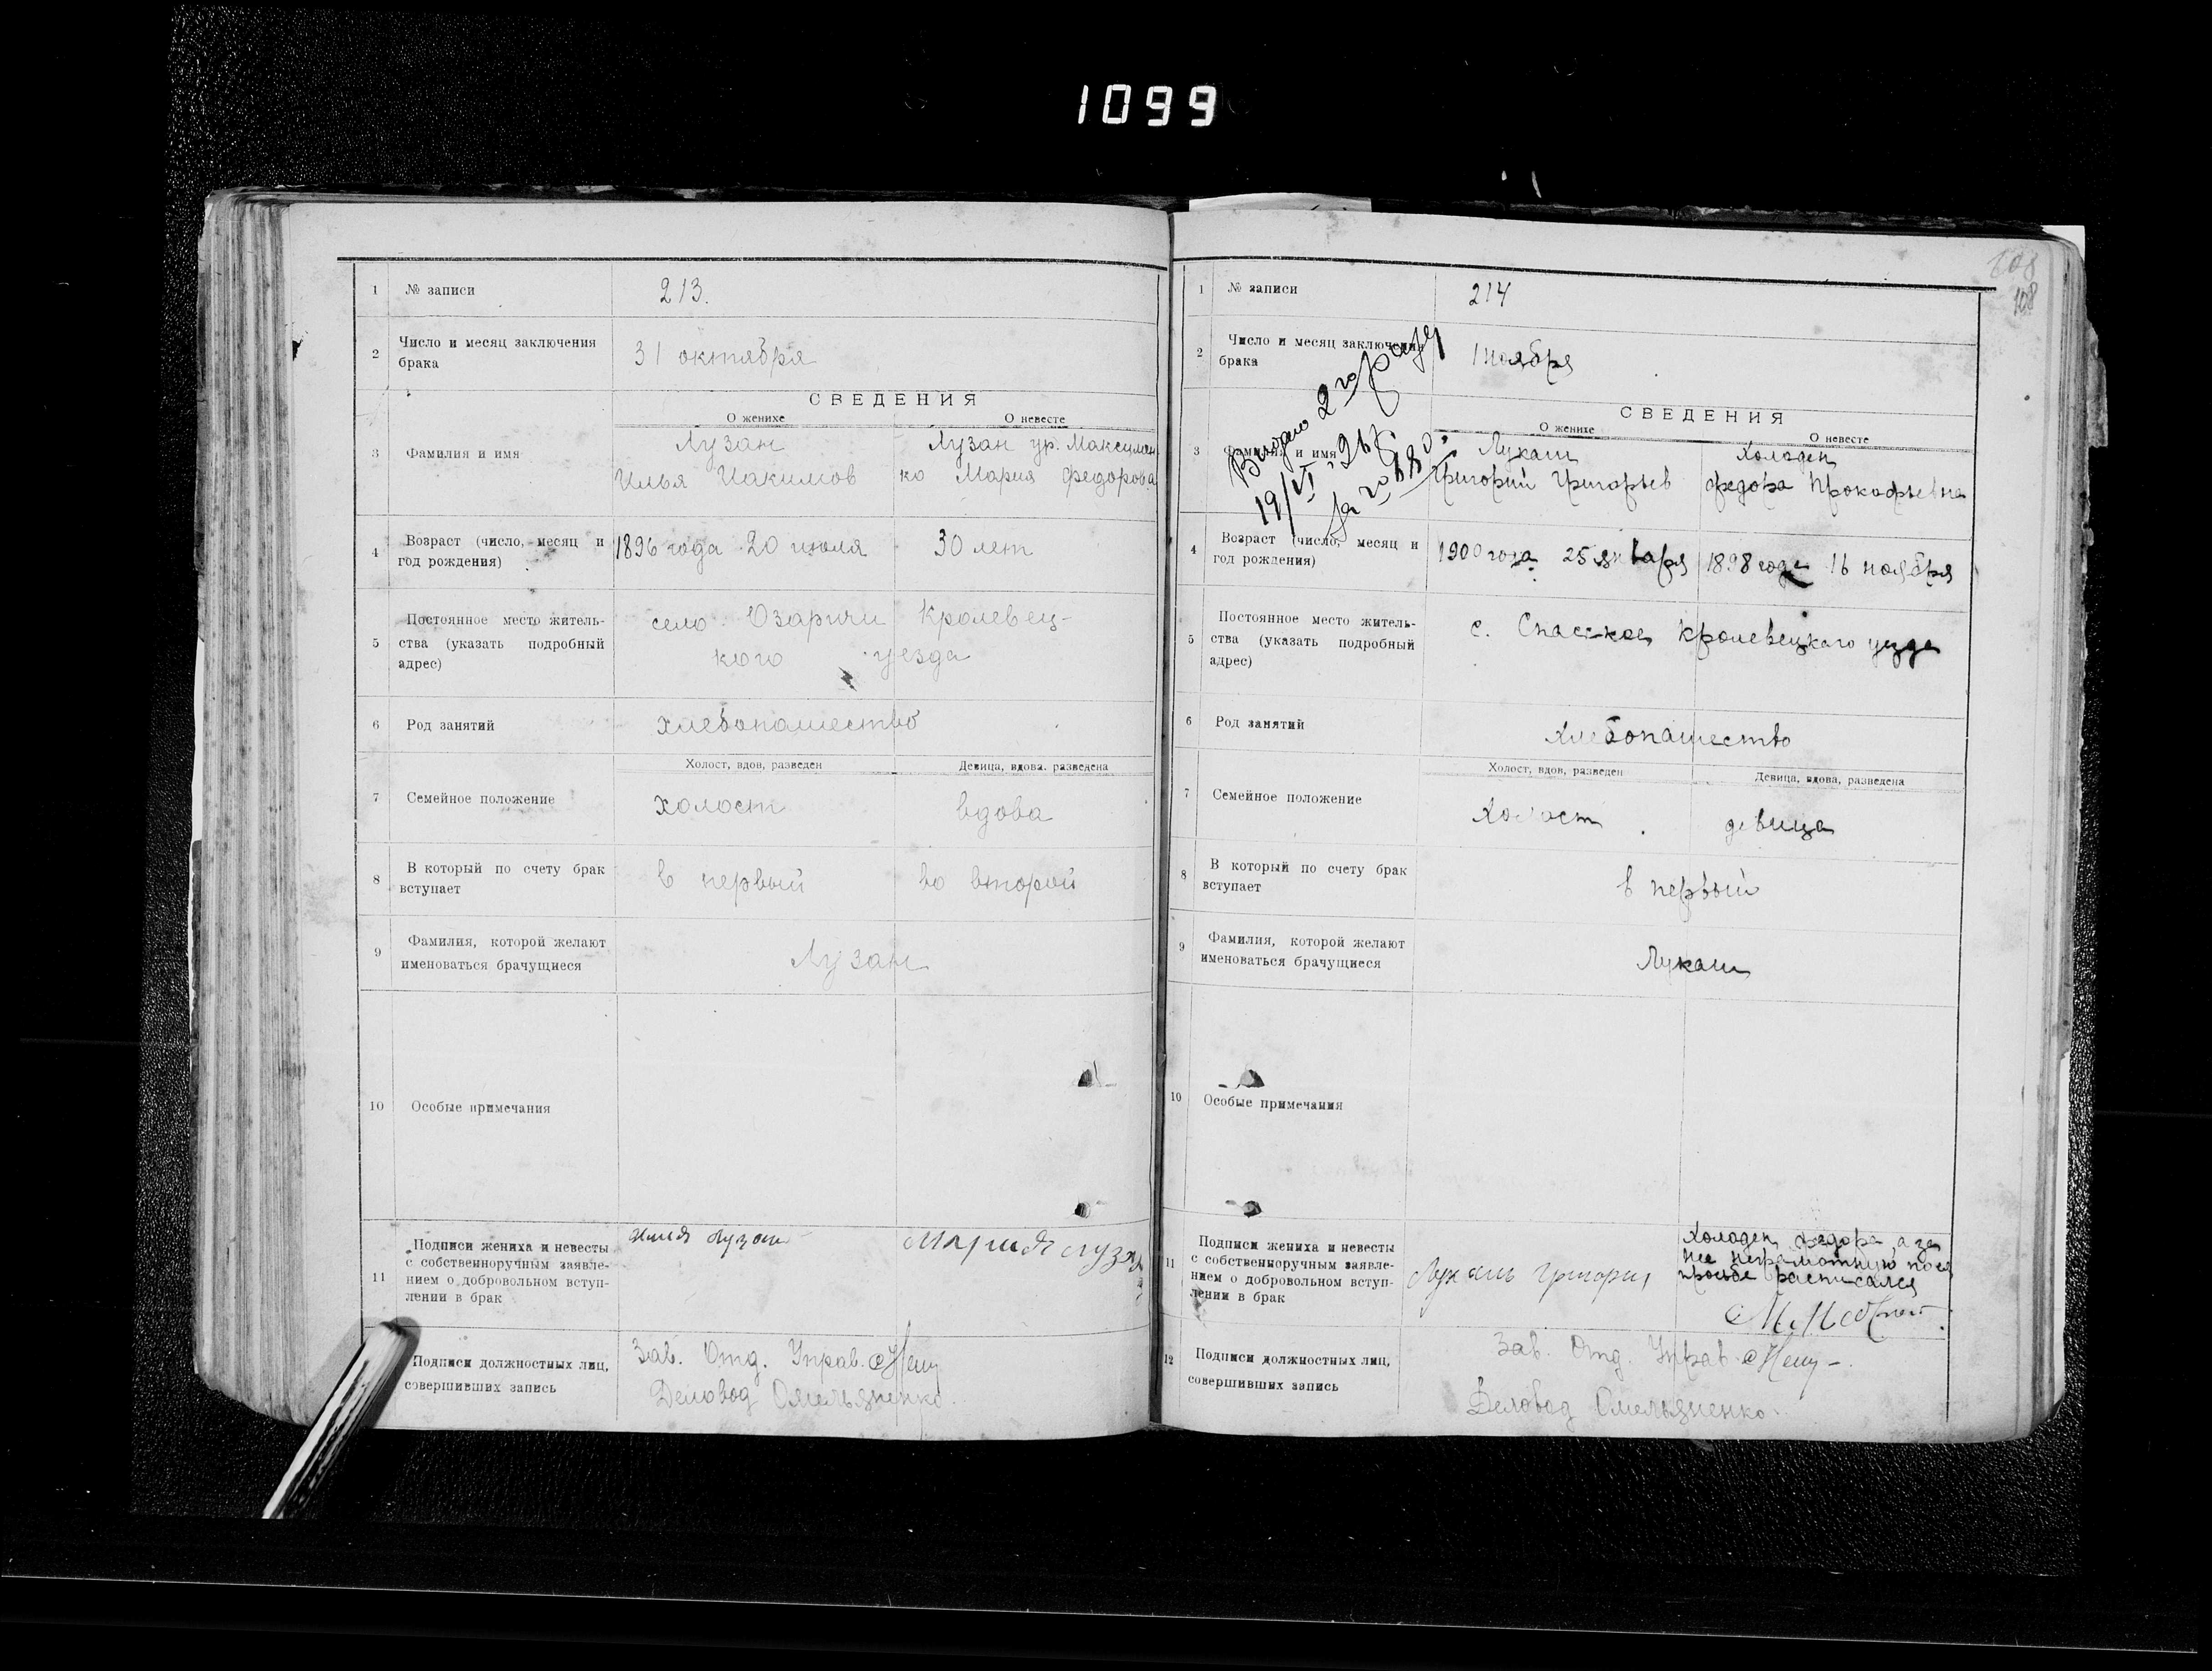 1099
1 № записи 213.
2 Число и месяц заключения
брака
31 октября
СВЕДЕНИЯ
О женихе О невесте
3 Фамилия и имя
Лузан Лузан ур. Максимен
Илья Иакимов ко Мария Федорова
4 Возраст (число, месяц и
год рождения)
1896 года 20 июля 30 лет
5 Постоянное место житель-
ства (указать подробный
адрес)
село Озаричи Кролевец-
кого уезда
6 Род занятий хлебопашество
Холост, вдов, разведен Девица, вдова. разведена
7 Семейное положение холост вдова
8 В который по счету брак
вступает
в первый во второй
9 Фамилия, которой желают
именоваться брачущиеся
Лузан
10 Особые примечания
11 Подписи жениха и невесты
с собственноручным заявле-
нием о добровольном вступ-
лении в брак
Илия Лузан Мария Лузан
Подписи должностных лиц,
совершивших запись
Зав. Отд. Управ.
Деловод Омельяненко.
108
108
1 № записи 214
2 Число и месяц заключения
брака
1 ноября
2го
19/VI
за №
СВЕДЕНИЯ
О женихе О невесте
3 Фамилия и имя
Лукаш Холоден
Григорий Григорьев Федора Прокофьевна
4 Возраст (число, месяц и
год рождения)
1900 года 25 января 1898 года 16 ноября
5 Постоянное место житель-
ства (указать подробный
адрес)
с. Спасское Кролевецкого уезда
6 Род занятий хлебопашество
Холост, вдов, разведен Девица, вдова, разведена
7 Семейное положение Холост девица
8 В который по счету брак
вступает
в первый
9 Фамилия, которой желают
именоваться брачущиеся
Лукаш
10 Особые примечания
11 Подписи жениха и невесты
с собственноручным заявле-
нием о добровольном вступ-
лении в брак
Лукашь Григорий
Холоден Федора, а за
нее неграмотную по ея
просьбе расписался
12 Подписи должностных лиц,
совершивших запись
Зав. Отд. Управ
Деловод Омельяненко.